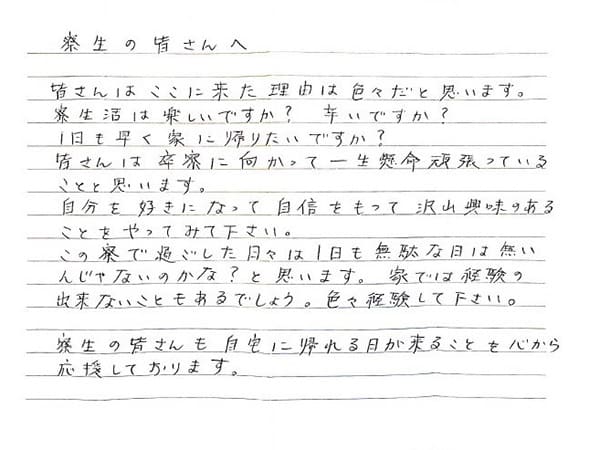 寮生の皆さんへ
皆さんはここに来た理由は色々だと思います。
寮生活は楽しいですか？ 辛いですか？
1日も早く家に帰りたいですか？
皆さんは卒寮に向かって一生懸命頑張っている
ことと思います。
自分を好きになって自信をもって沢山興味のある
ことをやってみて下さい。
この寮で過ごした日々は1日も無駄な日は無い
んじゃないのかな？と思います。家では経験の
出来ないこともあるでしょう。色々経験して下さい。
寮生の皆さんも自宅に帰れる日が来ることを心から
応援しております。